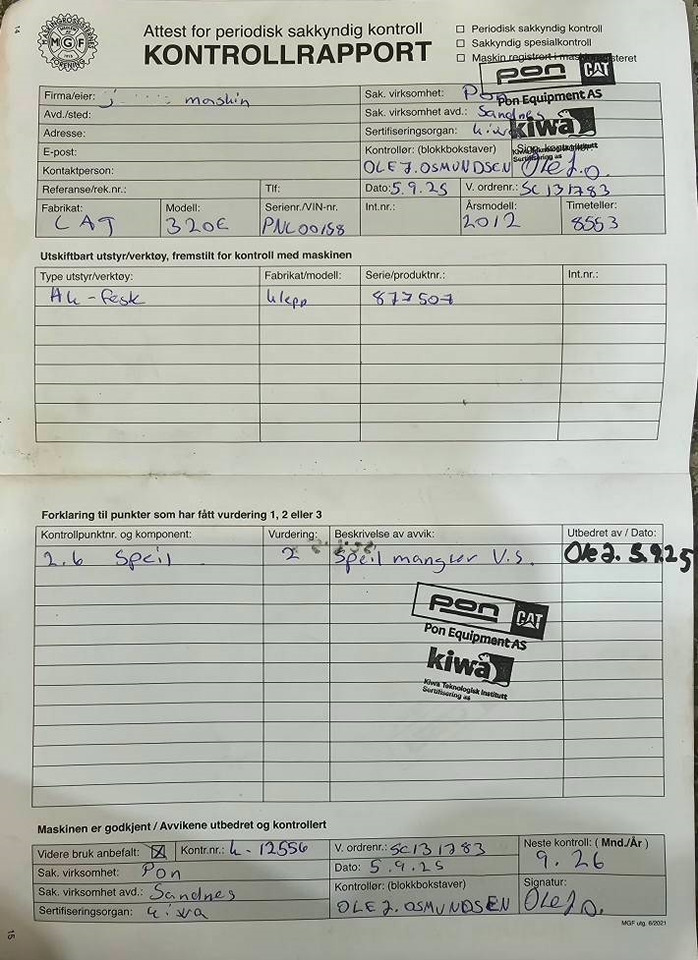 14
MASKINGROSSISTENES
MGF
FORENING
Attest for periodisk sakkyndig kontroll
KONTROLLRAPPORT
Periodisk sakkyndig kontroll
Sakkyndig spesialkontroll
Maskin registrert i
pon CAT
Pon Equipment AS
kiwa
Sertifisering as
Firma/eier: maskin
Sak. virksomhet: Pon
Avd./sted:
Sak. virksomhet avd.: Sandnes
Adresse:
Sertifiseringsorgan: kiwa
E-post:
Kontrollør: (blokkbokstaver)
Kontaktperson:
OLE J. OSMUNDSEN Ole J. O.
Referanse/rek.nr.: Tlf: Dato: 5.9.25 V. ordrenr.: SC131783
Fabrikat: Modell: Serienr./VIN-nr. Int.nr.: Årsmodell: Timeteller:
CAT 320E PNL00158 2012 8553
Utskiftbart utstyr/verktøy, fremstilt for kontroll med maskinen
Type utstyr/verktøy: Fabrikat/modell: Serie/produktnr.: Int.nr.:
Hk-feste Klepp 877507
Forklaring til punkter som har fått vurdering 1, 2 eller 3
Kontrollpunktnr. og komponent: Vurdering: Beskrivelse av avvik: Utbedret av / Dato:
2.6 Speil 2 Speil mangler V.S. Ole J. 5.9.25
pon CAT
Pon Equipment AS
kiwa
Kiwa Teknologisk Institutt
Sertifisering as
Maskinen er godkjent / Avvikene utbedret og kontrollert
Videre bruk anbefalt: X Kontr.nr.: K-12556 V. ordrenr.: SC131783 Neste kontroll: ( Mnd./År )
9.26
Sak. virksomhet: Pon Dato: 5.9.25
Sak. virksomhet avd.: Sandnes Kontrollør: (blokkbokstaver) Signatur:
Sertifiseringsorgan: Kiwa OLE J. OSMUNDSEN Ole J. O.
15
MGF utg. 6/2021